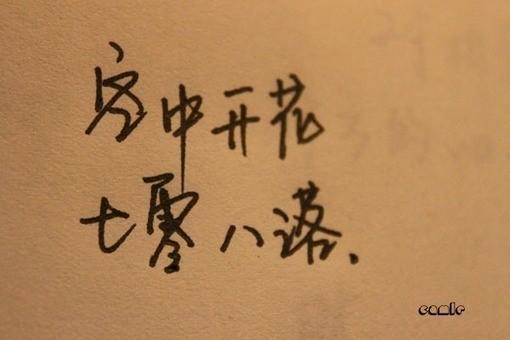 空中开花
七零八落、